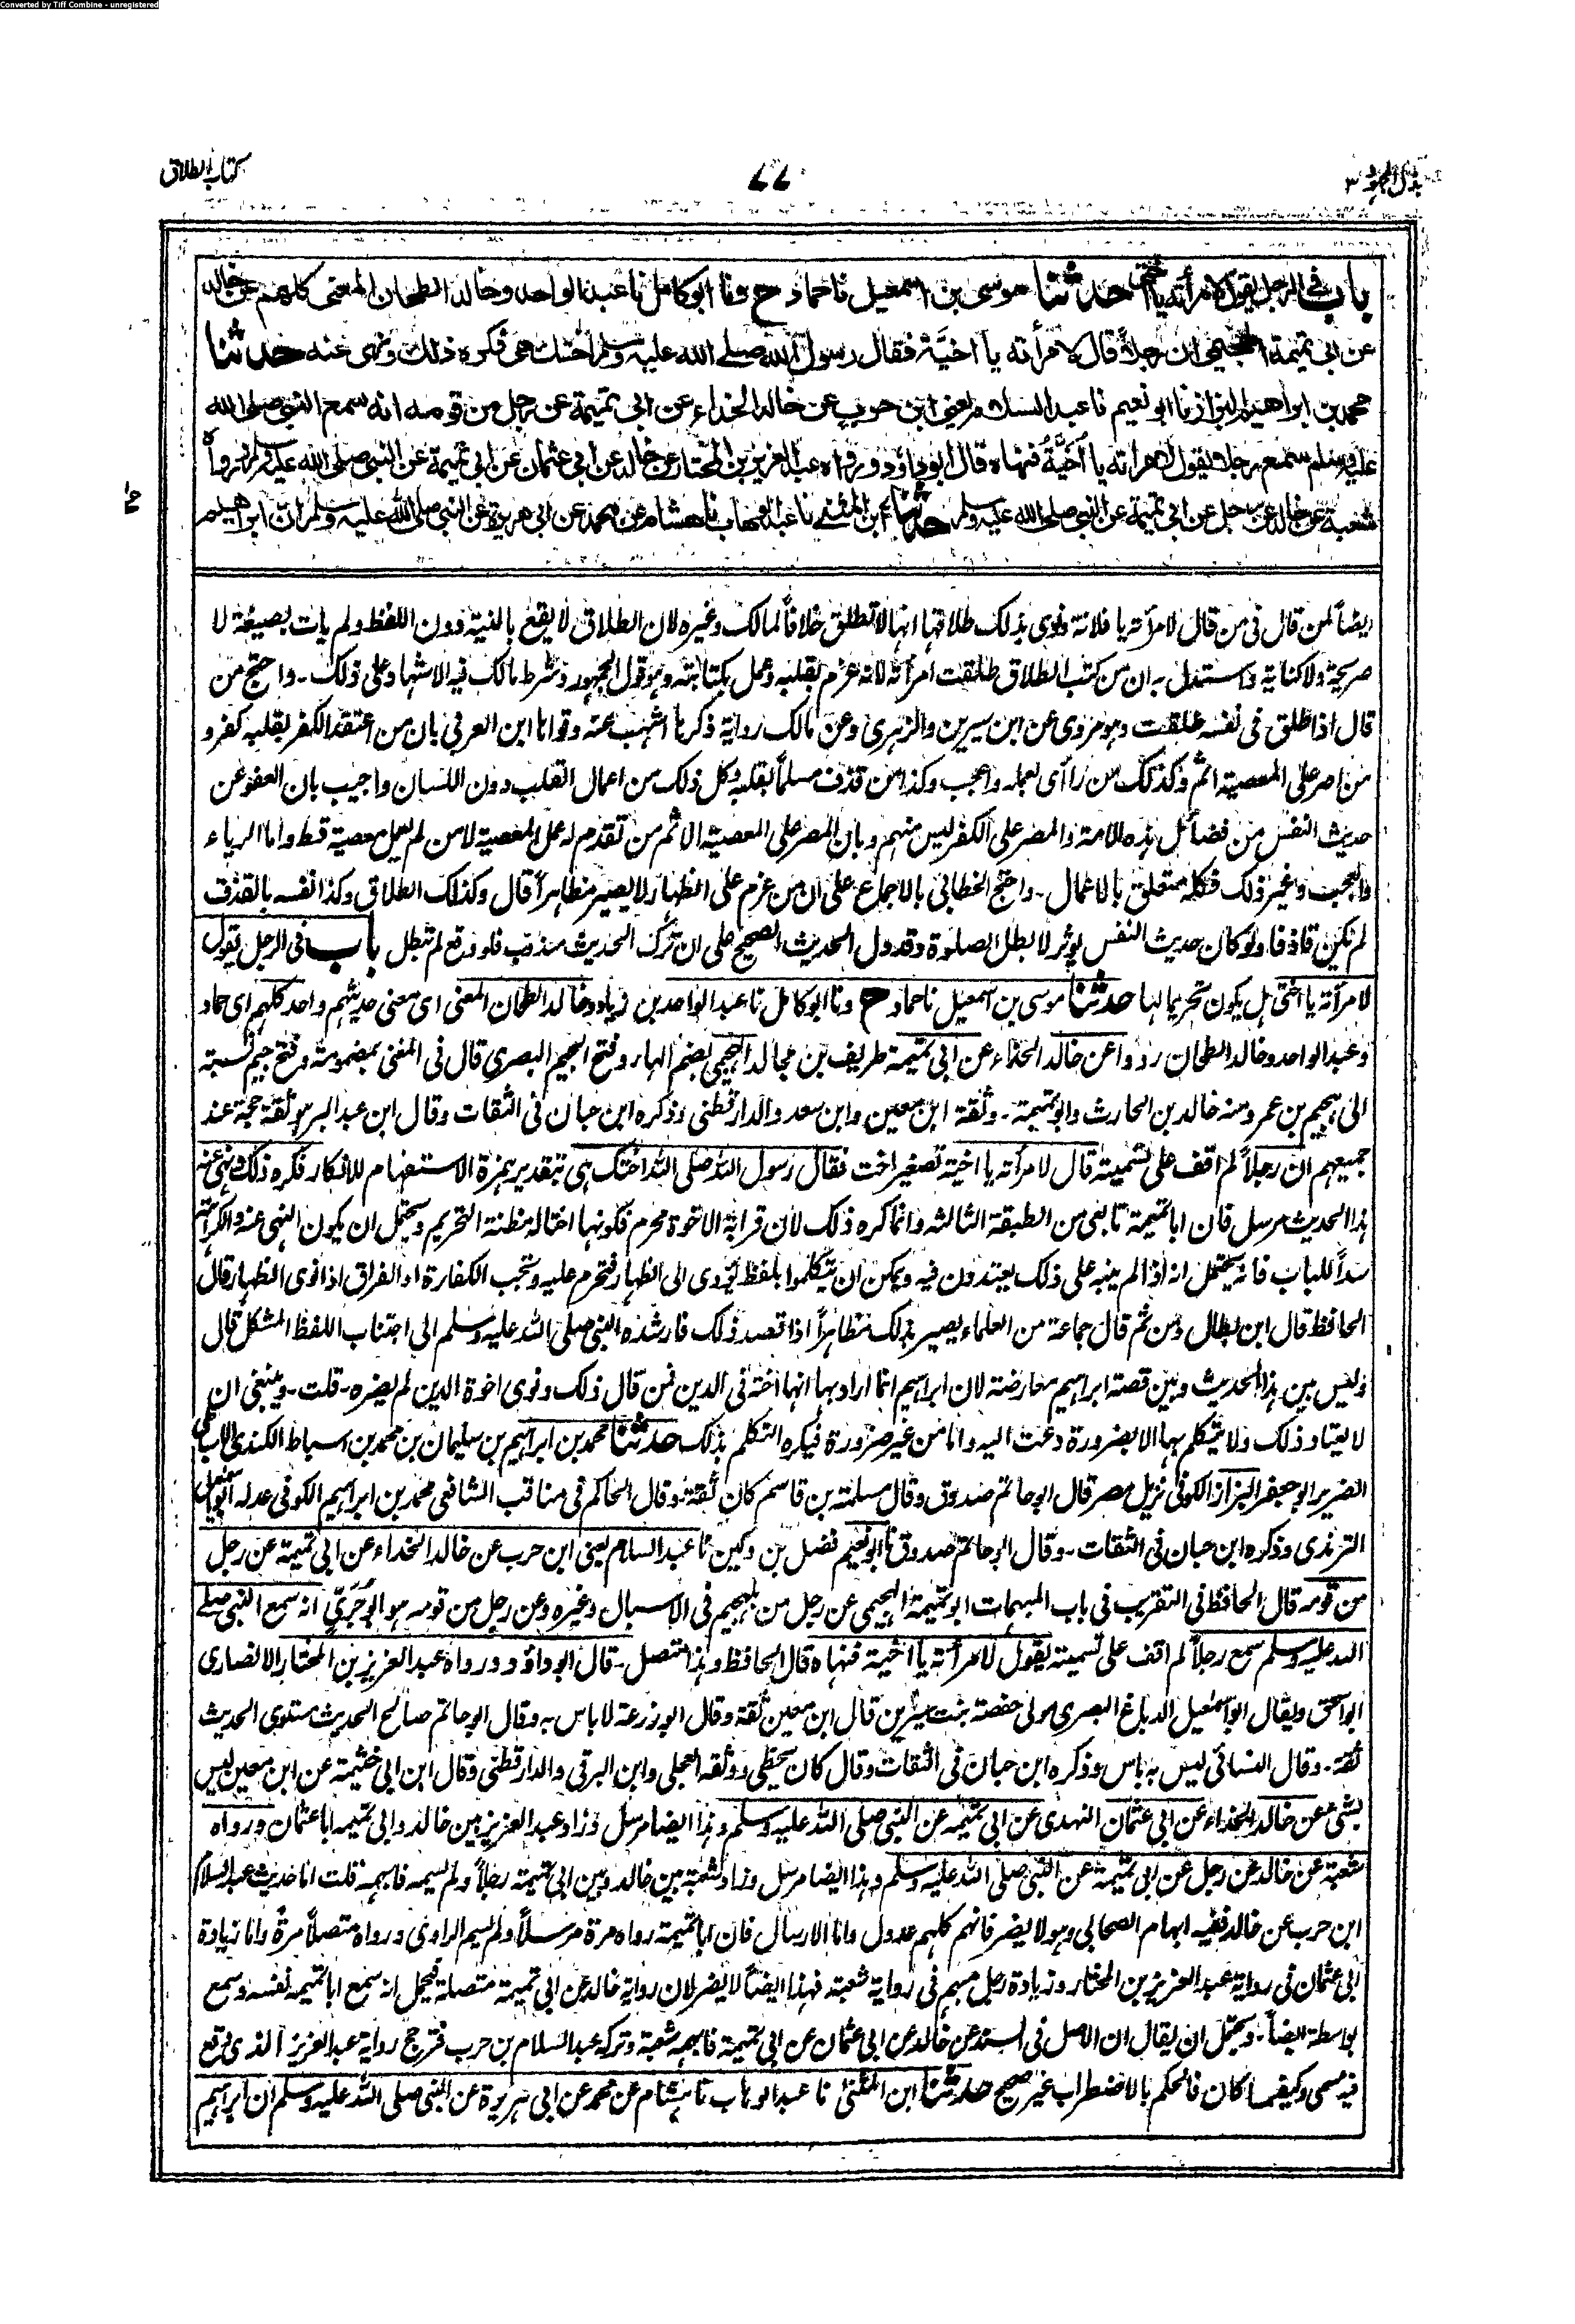 Converted by Tiff Combine - unregistered
بذل المجهود ٣
٧٧
كتاب الطلاق
باب في الرجل يقول لامرأته يا اختى حدثنا موسى بن اسمعيل نا حماد ح ونا ابو كامل نا عبد الواحد وخالد الطحان المعنى كلهم عن خالد
عن ابى تميمة الهجيمى ان رجلا قال لامرأته يا اخية فقال رسول الله صلى الله عليه وسلم اختك هى فكره ذلك ونهى عنه حدثنا
محمد بن ابراهيم البزاز نا ابو نعيم نا عبد السلام يعنى ابن حرب عن خالد الحذاء عن ابى تميمة عن رجل من قومه انه سمع النبي صلى الله
عليه وسلم سمع رجلا يقول لامرأته يا اخية فنهاه قال ابو داؤد ورواه عبد العزيز بن المختار عن خالد عن ابى عثمان عن ابى تميمة عن النبي صلى الله عليه وسلم ورواه
شعبة عن خالد عن رجل عن ابى تميمة عن النبي صلى الله عليه وسلم حدثنا ابن المثنى نا عبد الوهاب نا هشام عن محمد عن ابى هريرة عن النبي صلى الله عليه وسلم ان ابراهيم
ايضاً لمن قال فى من قال لامرأته يا فلانة ونوى بذلك طلاقها انها لا تطلق خلافاً لمالك وغيره لان الطلاق لا يقع بالنية دون اللفظ ولم يات بصيغة لا
صريحة ولا كناية واستدل به ان من كتب الطلاق طلقت امرأته لانه عزم بقلبه وعمل بكتابته وهو قول الجمهور وشرط مالك فيه الاشهاد على ذلك - واحتج من
قال اذا طلق فى نفسه طلقت وهو مروى عن ابن سيرين والزهرى وعن مالك رواية ذكرها اشهب عنه وقواها ابن العربى بان من اعتقد الكفر بقلبه كفر و
من اصر على المعصية اثم وكذلك من راآى بعمله واعجب وكذا من قذف مسلماً بقلبه وكل ذلك من اعمال القلب دون اللسان واجيب بان العفو عن
حديث النفس من فضائل هذه الامة والمصر على الكفر ليس منهم وبان المصر على المعصية الاثم من تقدم له عمل المعصية لا من لم يعمل معصية قط واما الرياء
والعجب وغير ذلك فكله متعلق بالاعمال - واحتج الخطابى بالاجماع على ان من عزم على الظهار لا يصير مظاهراً قال وكذلك الطلاق وكذا نفسه بالقذف
لم يكن قاذفا ولو كان حديث النفس يؤثر لابطل الصلوة وقد دل الحديث الصحيح على ان ترك الحديث مندوب فلو وقع لم تبطل باب فى الرجل يقول
لامرأته يا اختى هل يكون تحريما لها حدثنا موسى بن اسمعيل نا حماد ح ونا ابو كامل نا عبد الواحد بن زياد وخالد الطحان المعنى اى معنى حديثهم واحد كلهم اى حماد
وعبد الواحد وخالد الطحان رووا عن خالد الحذاء عن ابى تميمة طريف بن مجالد الهجيمى بضم الهاء وفتح الجيم البصرى قال فى المغنى بمضمومة وفتح جيم نسبة
الى هجيم بن عمرو منه خالد بن الحارث وابو تميمة - وثقة ابن معين وابن سعد والدارقطنى وذكره ابن حبان فى الثقات وقال ابن عبد البر هو ثقة حجة عند
جميعهم ان رجلاً لم اقف على تسميته قال لامرأته يا اخية تصغير اخت فقال رسول الله صلى الله اختك هى بتقدير همزة الاستفهام للانكار فكره ذلك ونهى عنه
هذا الحديث مرسل فان ابا تميمة تابعى من الطبقة الثالثه وانما كره ذلك لان قرابة الاخوة محرم فكونها اختا له مظنة التحريم ويحتمل ان يكون النهى عنه والكراهة
سداً للباب فانه يحتمل انه اذا لم ينبه على ذلك يعتدون فيه ويمكن ان يتكلموا بلفظ يؤدى الى الظهار فتحرم عليه وتجب الكفارة او الفراق اذا نوى الظهار قال
الحافظ قال ابن بطال ومن ثم قال جماعة من العلماء يصير بذلك مظاهراً اذا قصد ذلك فارشده النبى صلى الله عليه وسلم الى اجتناب اللفظ المشكل قال
وليس بين هذا الحديث وبين قصة ابراهيم معارضة لان ابراهيم انما اراد بها انها اخته فى الدين فمن قال ذلك ونوى اخوة الدين لم يضره - قلت - وينبغى ان
لا يعتاد ذلك ولا يتكلم بها الا بضرورة دعت اليه واما من غير ضرورة فيكره التكلم بذلك حدثنا محمد بن ابراهيم بن سليمان بن محمد بن اسباط الكندى الاسباطى
الضرير ابو جعفر البزاز الكوفى نزيل مصر قال ابو حاتم صدوق وقال مسلمة بن قاسم كان ثقة - وقال الحاكم فى مناقب الشافعى محمد بن ابراهيم الكوفى عدله ابو اسمعيل
الترمذى وذكره ابن حبان فى الثقات - وقال ابو حاتم صدوق نا ابو نعيم فضل بن دكين نا عبد السلام يعنى ابن حرب عن خالد الحذاء عن ابى تميمة عن رجل
من قومه قال الحافظ فى التقريب فى باب المبهمات ابو تميمة الهجيمى عن رجل من بلهجيم فى الاسبال وغيره وعن رجل من قومه هو ابو جرى انه سمع النبى صلى
الله عليه وسلم سمع رجلاً لم اقف على تسميته يقول لامرأته يا اخية فنهاه قال الحافظ وهذا متصل - قال ابو داؤد ورواه عبد العزيز بن المختار الانصارى
ابو اسحق ويقال ابو اسمعيل الدباغ البصرى مولى حفصة بنت سيرين قال ابن معين ثقة وقال ابو زرعة لا باس به وقال ابو حاتم صالح الحديث مستوى الحديث
ثقة - وقال النسائى ليس به باس وذكره ابن حبان فى الثقات وقال كان يخطى ووثقه العجلى وابن البرقى والدارقطنى وقال ابن ابى خثيمة عن ابن معين ليس
بشئ عن خالد الحذاء عن ابى عثمان النهدى عن ابى تميمه عن النبى صلى الله عليه وسلم وهذا ايضا مرسل وزاد عبد العزيز بين خالد وابى تميمه ابا عثمان ورواه
شعبة عن خالد عن رجل عن ابى تميمة عن النبى صلى الله عليه وسلم وهذا ايضا مرسل وزاد شعبة بين خالد وبين ابى تميمة رجلاً ولم يسمه فابهمه قلت اما حديث عبد السلام
ابن حرب عن خالد ففيه ابهام الصحابى وهو لا يضر فانهم كلهم عدول واما الارسال فان ابا تميمة رواه مرة مرسلاً ولم يسم الراوى ورواه متصلاً مرةً واما زيادة
ابى عثمان فى رواية عبد العزيز بن المختار وزيادة رجل مبهم فى رواية شعبة فهذا ايضاً لا يضر لان رواية خالد عن ابى تميمة متصلة فيحمل انه سمع ابا تميمه نفسه وسمع
بواسطة ايضاً - ويحتمل ان يقال ان الاصل فى السند عن خالد عن ابى عثمان عن ابى تميمة فابهمه شعبة وتركه عبد السلام بن حرب فترجح رواية عبد العزيز الذى وقع
فيه مسمى وكيفما كان فالحكم بالاضطراب غير صحيح حدثنا ابن المثنى نا عبد الوهاب نا هشام عن محمد عن ابى هريرة عن النبى صلى الله عليه وسلم ان ابراهيم